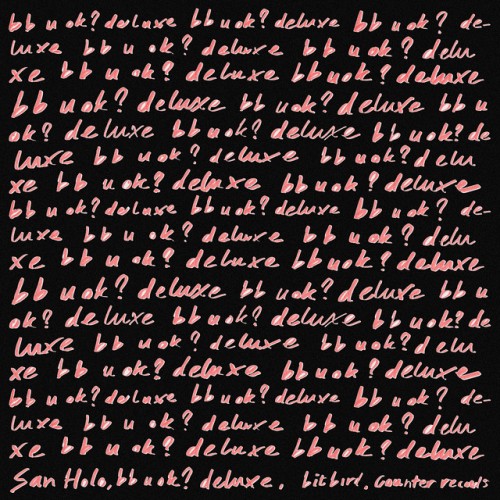 bb u ok? deluxe bb u ok? deluxe bb u ok? de-
luxe bb u ok? deluxe bb u ok? delu
xe bb u ok? deluxe bb u ok? deluxe
bb u ok? deluxe bb u ok? deluxe bb u
ok? deluxe bb u ok? deluxe bb u ok? de
luxe bb u ok? deluxe bb u ok? delu
xe bb u ok? deluxe bb u ok? deluxe
bb u ok? deluxe bb u ok? deluxe bb u ok? de-
luxe bb u ok? deluxe bb u ok? delu
xe bb u ok? deluxe bb u ok? deluxe
bb u ok? deluxe bb u ok? deluxe bb u
ok? deluxe bb u ok? deluxe bb u ok? de
luxe bb u ok? deluxe bb u ok? delu
xe bb u ok? deluxe bb u ok? deluxe
bb u ok? deluxe bb u ok? deluxe bb u ok? de-
luxe bb u ok? deluxe bb u ok? delu
xe bb u ok? deluxe bb u ok? deluxe
San Holo, bb u ok? deluxe. bitbird. Counter records